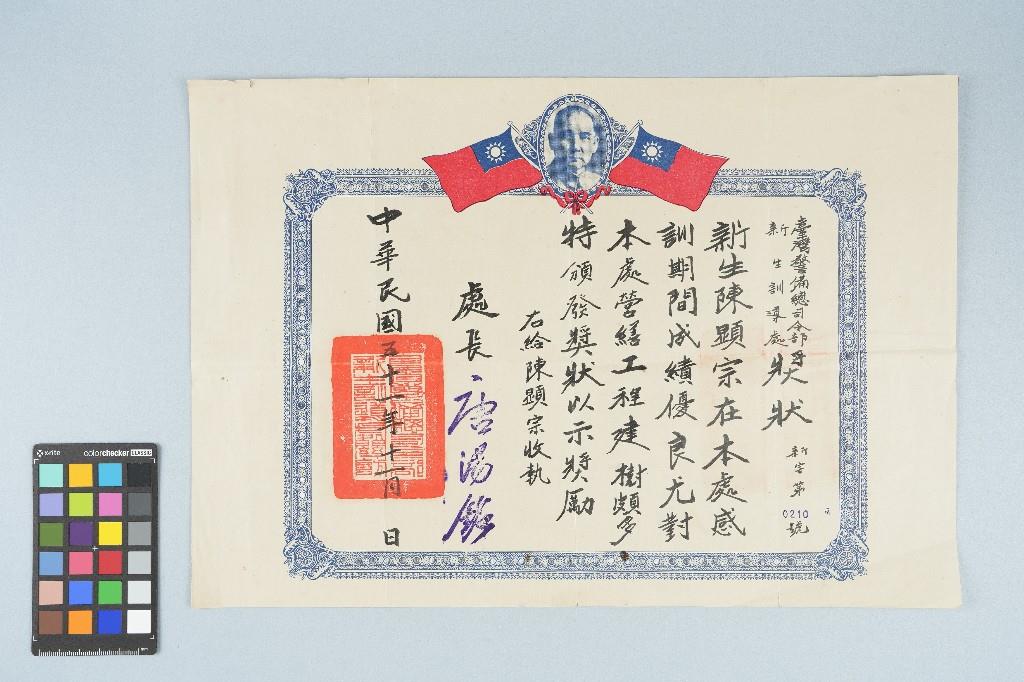 臺灣警備總司令部
新生訓導處
獎狀
新字第0210號
新生陳顯宗在本處感
訓期間成績優良尤對
本處營繕工程建樹頗多
特頒發獎狀以示獎勵
右給陳顯宗收執
處長 唐湯銘
中華民國五十一年十一月 日
x-rite
colorchecker CLASSIC
mm